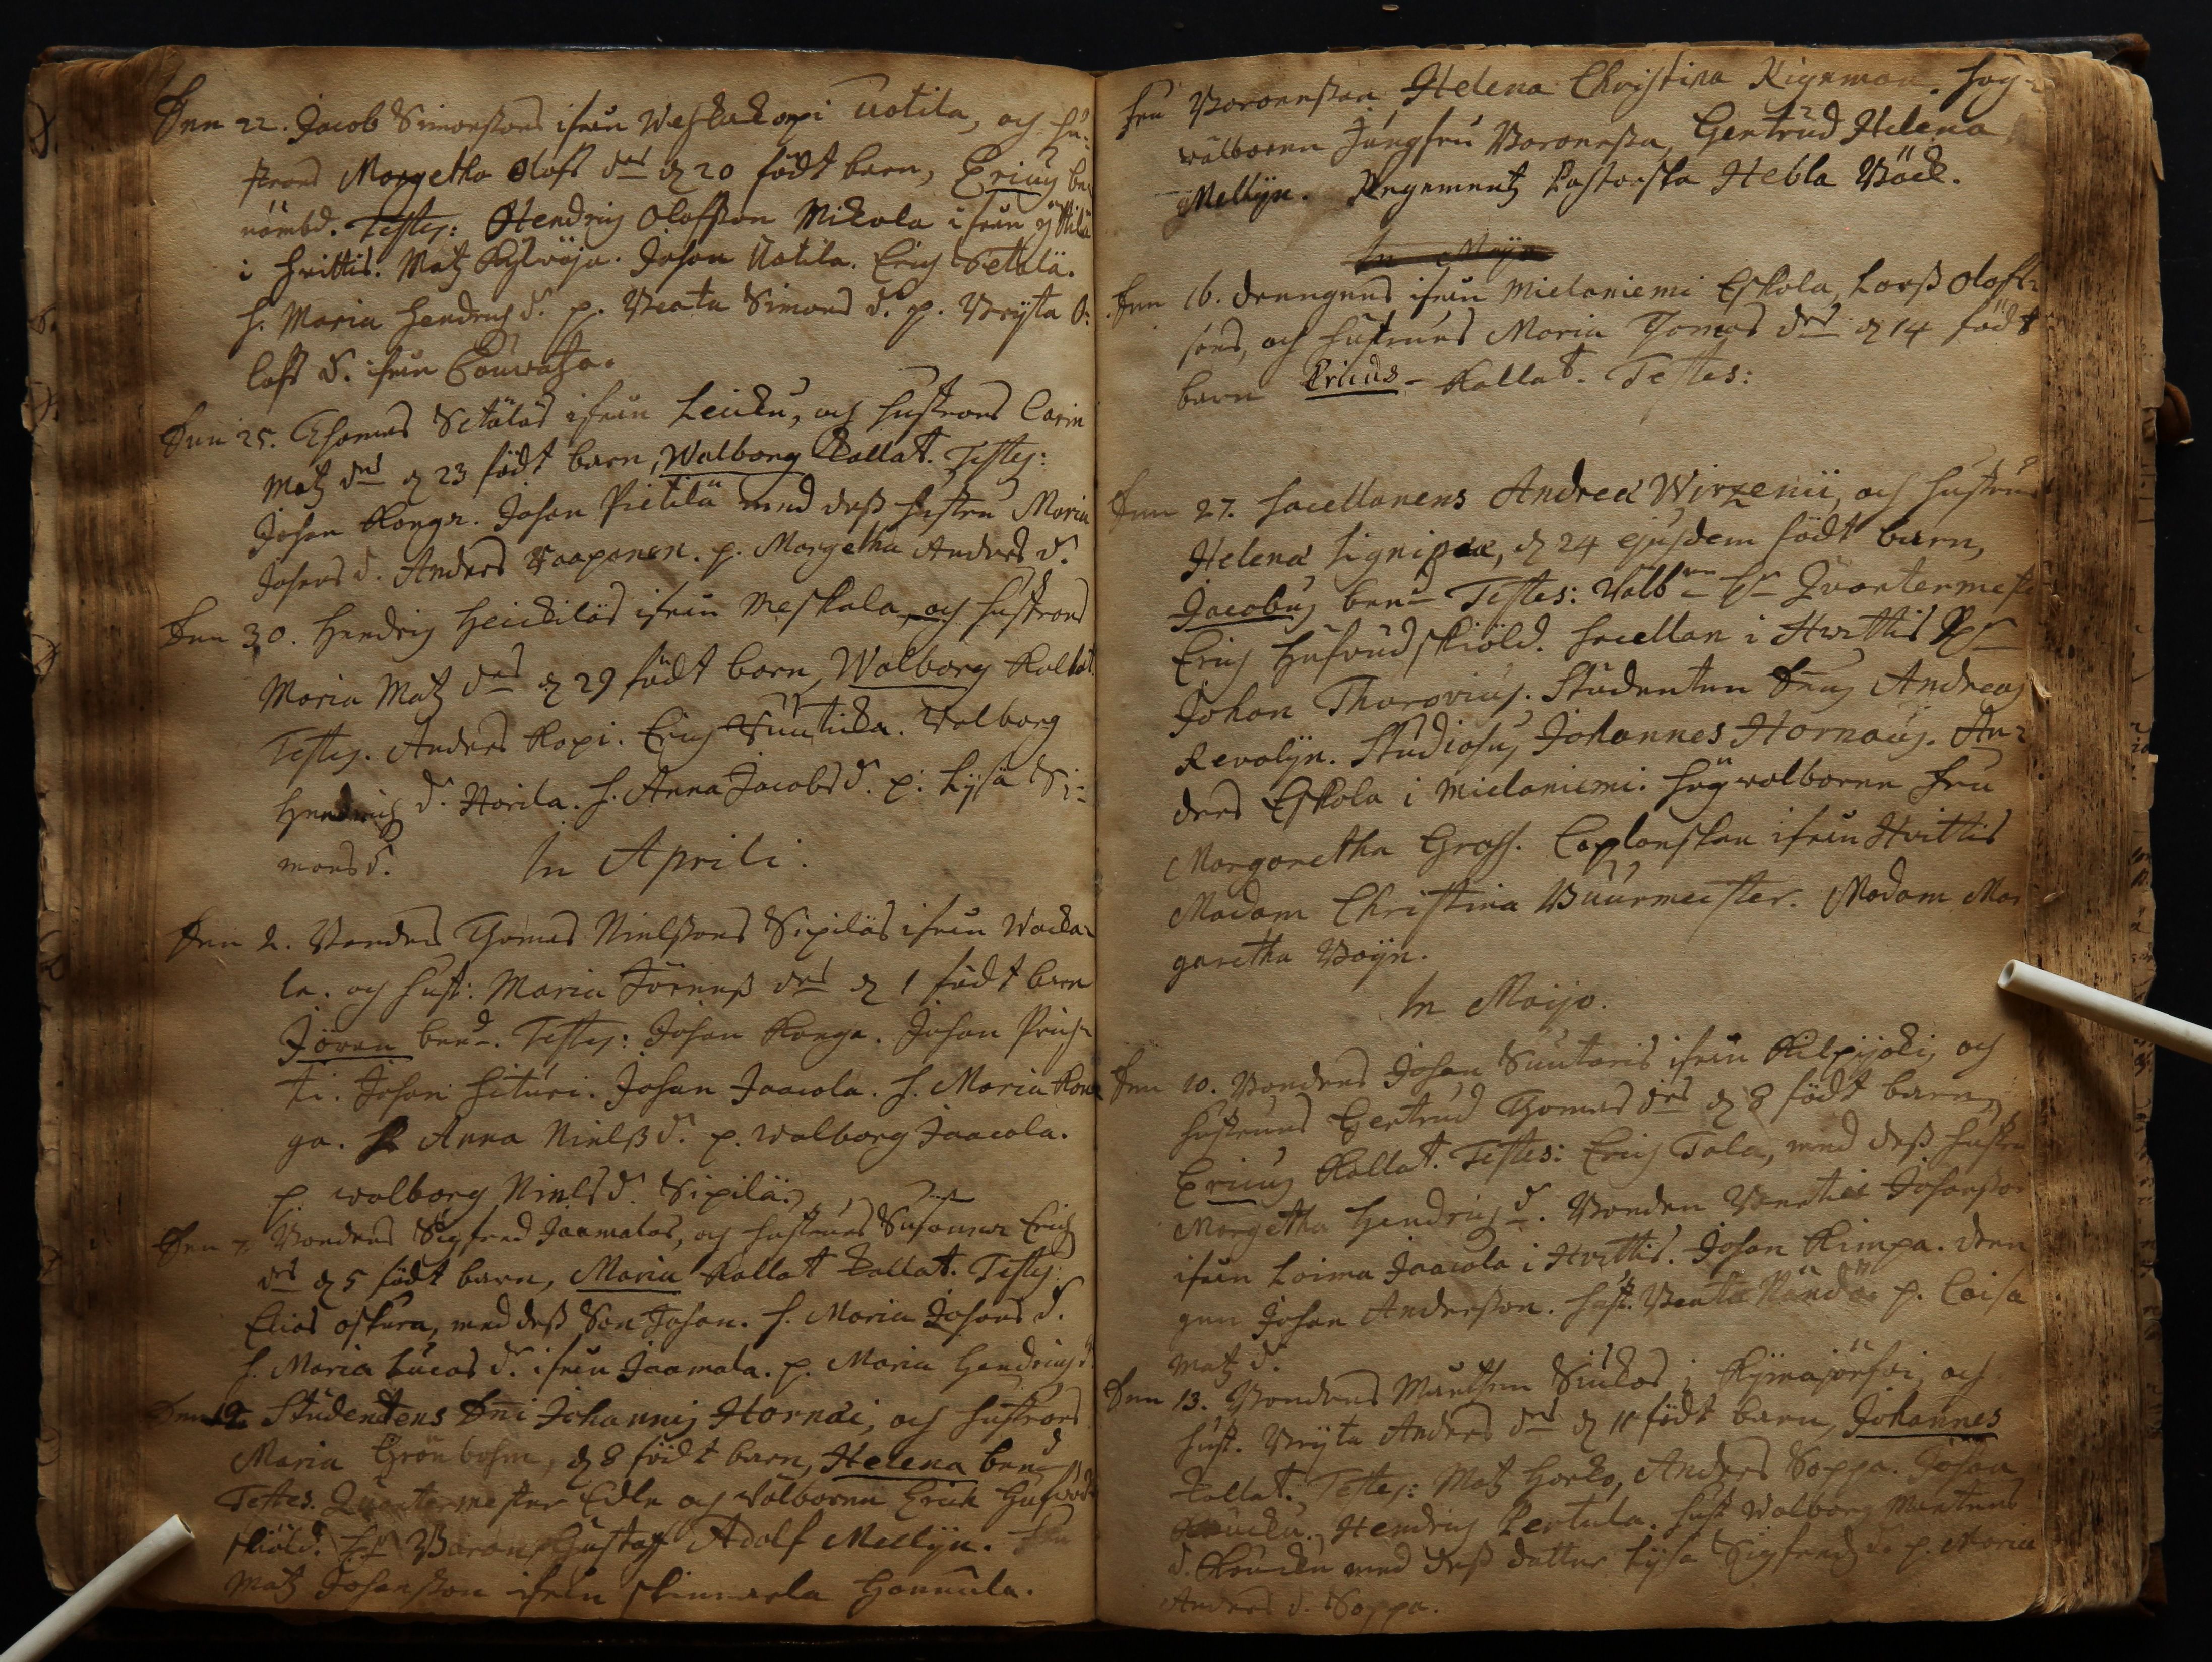 Den 22. Jacob Simonssons ifrån Weskakopi Uotila, och hu-
strus Margetha Olofs drs d 20 födt barn, Ericus be-
nämbd. Testes: Hendric Olofsson Mikola ifrån
i Hvittis. Matz Kylöja. Johan Uotila. Erich Setälä.
h. Maria Hendrichs d. p. Beata Simons d. p. Bryta O-
lofs d. ifrån Cauvatza.
Den 25. Thomas Setäläs ifrån Leicku, och hustros Carin
Matz drs d 23 födt barn, Walborg Kallat. Testes:
Johan Konga. Johan Pietilä med dess hustru Maria
Johans d. Anders Raaponen. p. Margetha Anders d.
Den 30. Hendric Heickiläs ifrån Meskala, och hustros
Maria Matz drs d 29 födt barn, Walborg Kallat.
Testes. Anders Kopi. Erich. Walborg
Hendrichs d. Horila. h. Anna Jacobs d. p. Lysa Si-
mons d. In Aprili.
Den 2. Bondens Thomas Nielssons Sipiläs ifrån Wacka-
la. och hust: Maria Jörenss drs d 1 födt barn
Jören bend. Testes: Johan Konga. Johan
ti. Johan Hituri. Johan Jaacola. h. Maria Kon-
ga. h Anna Nielss d. p. Walborg Jaacola.
p Walborg Niels d. Sipilä.
Den 7. Bondens Sigfred Jaamalas, och hustrus Susanna Erichs
drs d 5 födt barn, Maria Kallat Kallat. Testes:
Elias Oskura, med dess Son Johan. h. Maria Johans d.
h. Maria Lucas d. ifrån Jaamala. p. Maria Hendrichs d.
Den 12 Studentens Dni Johannis Hornæi, och hustros
Maria Grönbohm, d 8 födt barn, Helena bend
Testes. Quartermester Edle och Välborne Erich Hufvud-
skiöld. Hr Baron Gustaff Adolf Mellijn.
Matz Johansson ifrån Skinnarla Hannula.
Fru Baronessan Helena Christina Nieroman. Hög-
välborne Jungfru Baronessa Gertrud Helena
Mellijn. Regementz Pastorska Hebla Bäck.
In Majo
Den 16. Drengens ifrån Mielaniemi Eskola, Larss Olofs-
sons, och hustrus Maria Thomas drs d 14 födt
barn Ericus - Kallat. Testes:
Den 27. Sacellanens Andreæ Wirzenii, och hustrus
Helenæ Lignipææ, d 24 ejusdem födt barn,
Jacobus bend Testes: Välbne Hr Quartermest
Erich Hufvudskiöld. Sacellan i Hvittis Hr
Johan Tharovius. Studenten Dnus Andreas
Revalijn. Studiosus Johannes Hornæus. An-
ders Eskola i Mielaniemi. Högwälborne Fru
Margaretha Grass. Caplanskan ifrån Hvittis
Madam Christina Buurmeister. Madam Mar
garetha Boijn.
In Maijo.
Den 10. Bondens Johan Suutaris ifrån Kilpijoki, och
hustrus Gertrud Thomas drs d 8 födt barn,
Ericus Kallat. Testes: Erich Tala, med dess hustru
Margetha Hendrichs d. Bonden Johansson
ifrån Loima Jaacola i Hvittis. Johan Kimpa. Dren
gen Johan Andersson. hust. Beata p. Caisa
Matz d.
Den 13. Bondens Marthen Siukos i Kijmajärfvi, och
hust. Bryta Anders drs d 11 födt barn, Johannes
Kallat. Testes: Matz Horko, Anders Soppa. Johan
Hendric Pertula. hust Walborg Mårtens
d. med dess dotter Lysa Sigfredz d. p. Maria
Anders d. Soppa.